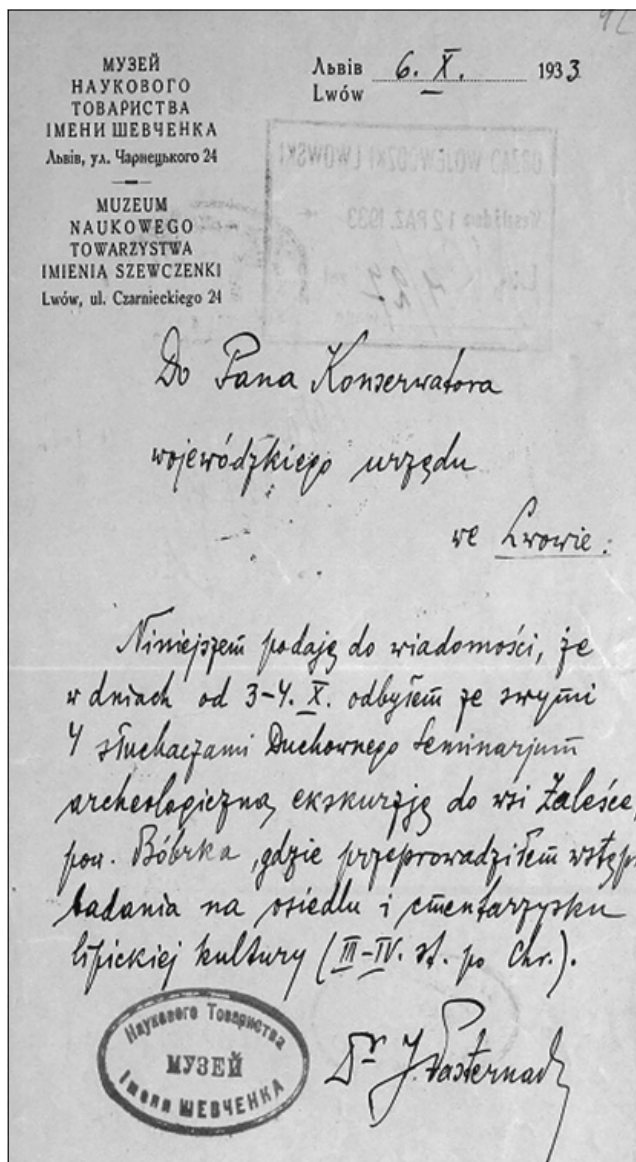 МУЗЕЙ
НАУКОВОГО
ТОВАРИСТВА
ІМЕНИ ШЕВЧЕНКА
Львів, ул. Чарнецького 24
MUZEUM
NAUKOWEGO
TOWARZYSTWA
IMIENIA SZEWCZENKI
Lwów, ul. Czarnieckiego 24
Львів 6. X. 1933
Lwów
URZĄD WOJEWÓDZKI LWOWSKI
12 PAŹ. 1933
Do Pana Konserwatora
wojewódzkiego urzędu
we Lwowie:
Niniejszem podaję do wiadomości, że
w dniach od 3-4. X. odbyłem ze swymi
4 słuchaczami Duchownego Seminarjum
archeologiczną ekskurzję do wsi Zaleśce,
pow. Bóbrka, gdzie przeprowadziłem wstępn
badania na osiedlu i cmentarzysku
lipickiej kultury (III-IV. st. po Chr.).
Dr J. Pasternak
Наукового Товариства
МУЗЕЙ
Імени ШЕВЧЕНКА